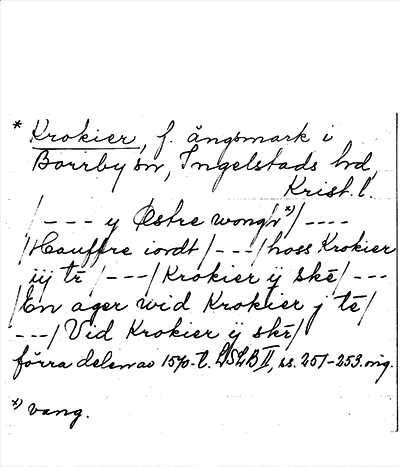 * Krokier, f. ängsmark i
Borrby sn, Ingelstads hd,
Krist. l.
/--- y Østre wongh *)/----
/Hauffre iordt/---/hoss Krokier
iij tē /---/Krokier ij skē/---
/En ager wid Krokier j tē/
--/Vid Krokier ij skē/
förra delen av 1570-t. LSLB II, ss. 257-259. orig.
*) vang.